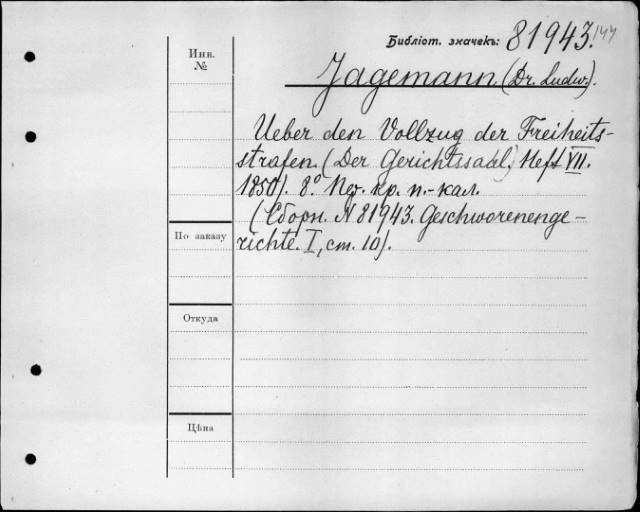 Библіот. значекъ: 81943.144
Инв.
№
Jagemann (Dr. Ludw.).
Ueber den Vollzug der Freiheits-
strafen. (Der Gerichtssaal, Heft VII.
1850). 8° Пер. кр. п.-кал.
(Сборн. N 81943. Geschworenenge-
richte. I, ст. 10).
По заказу
Откуда
Цѣна